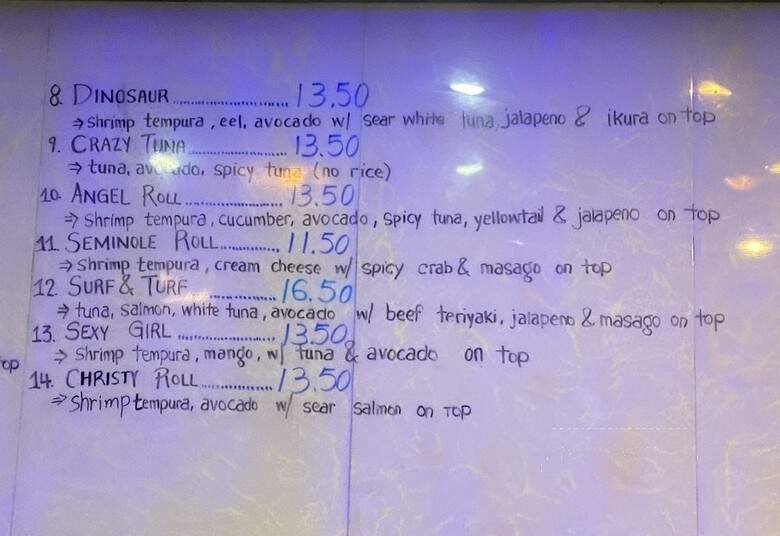 8. DINOSAUR ........................... 13.50
⇒ Shrimp tempura, eel, avocado w/ sear white tuna, jalapeno & ikura on top
9. CRAZY TUNA ........................ 13.50
⇒ tuna, avocado, spicy tuna (no rice)
10. ANGEL ROLL ....................... 13.50
⇒ Shrimp tempura, cucumber, avocado, spicy tuna, yellowtail & jalapeno on top
11. SEMINOLE ROLL .............. 11.50
⇒ Shrimp tempura, cream cheese w/ spicy crab & masago on top
12. SURF & TURF ................ 16.50
⇒ tuna, salmon, white tuna, avocado w/ beef teriyaki, jalapeno & masago on top
13. SEXY GIRL ....................... 13.50
⇒ Shrimp tempura, mango, w/ tuna & avocado on top
op
14. CHRISTY ROLL ................. 13.50
⇒ Shrimp tempura, avocado w/ sear salmon on TOP